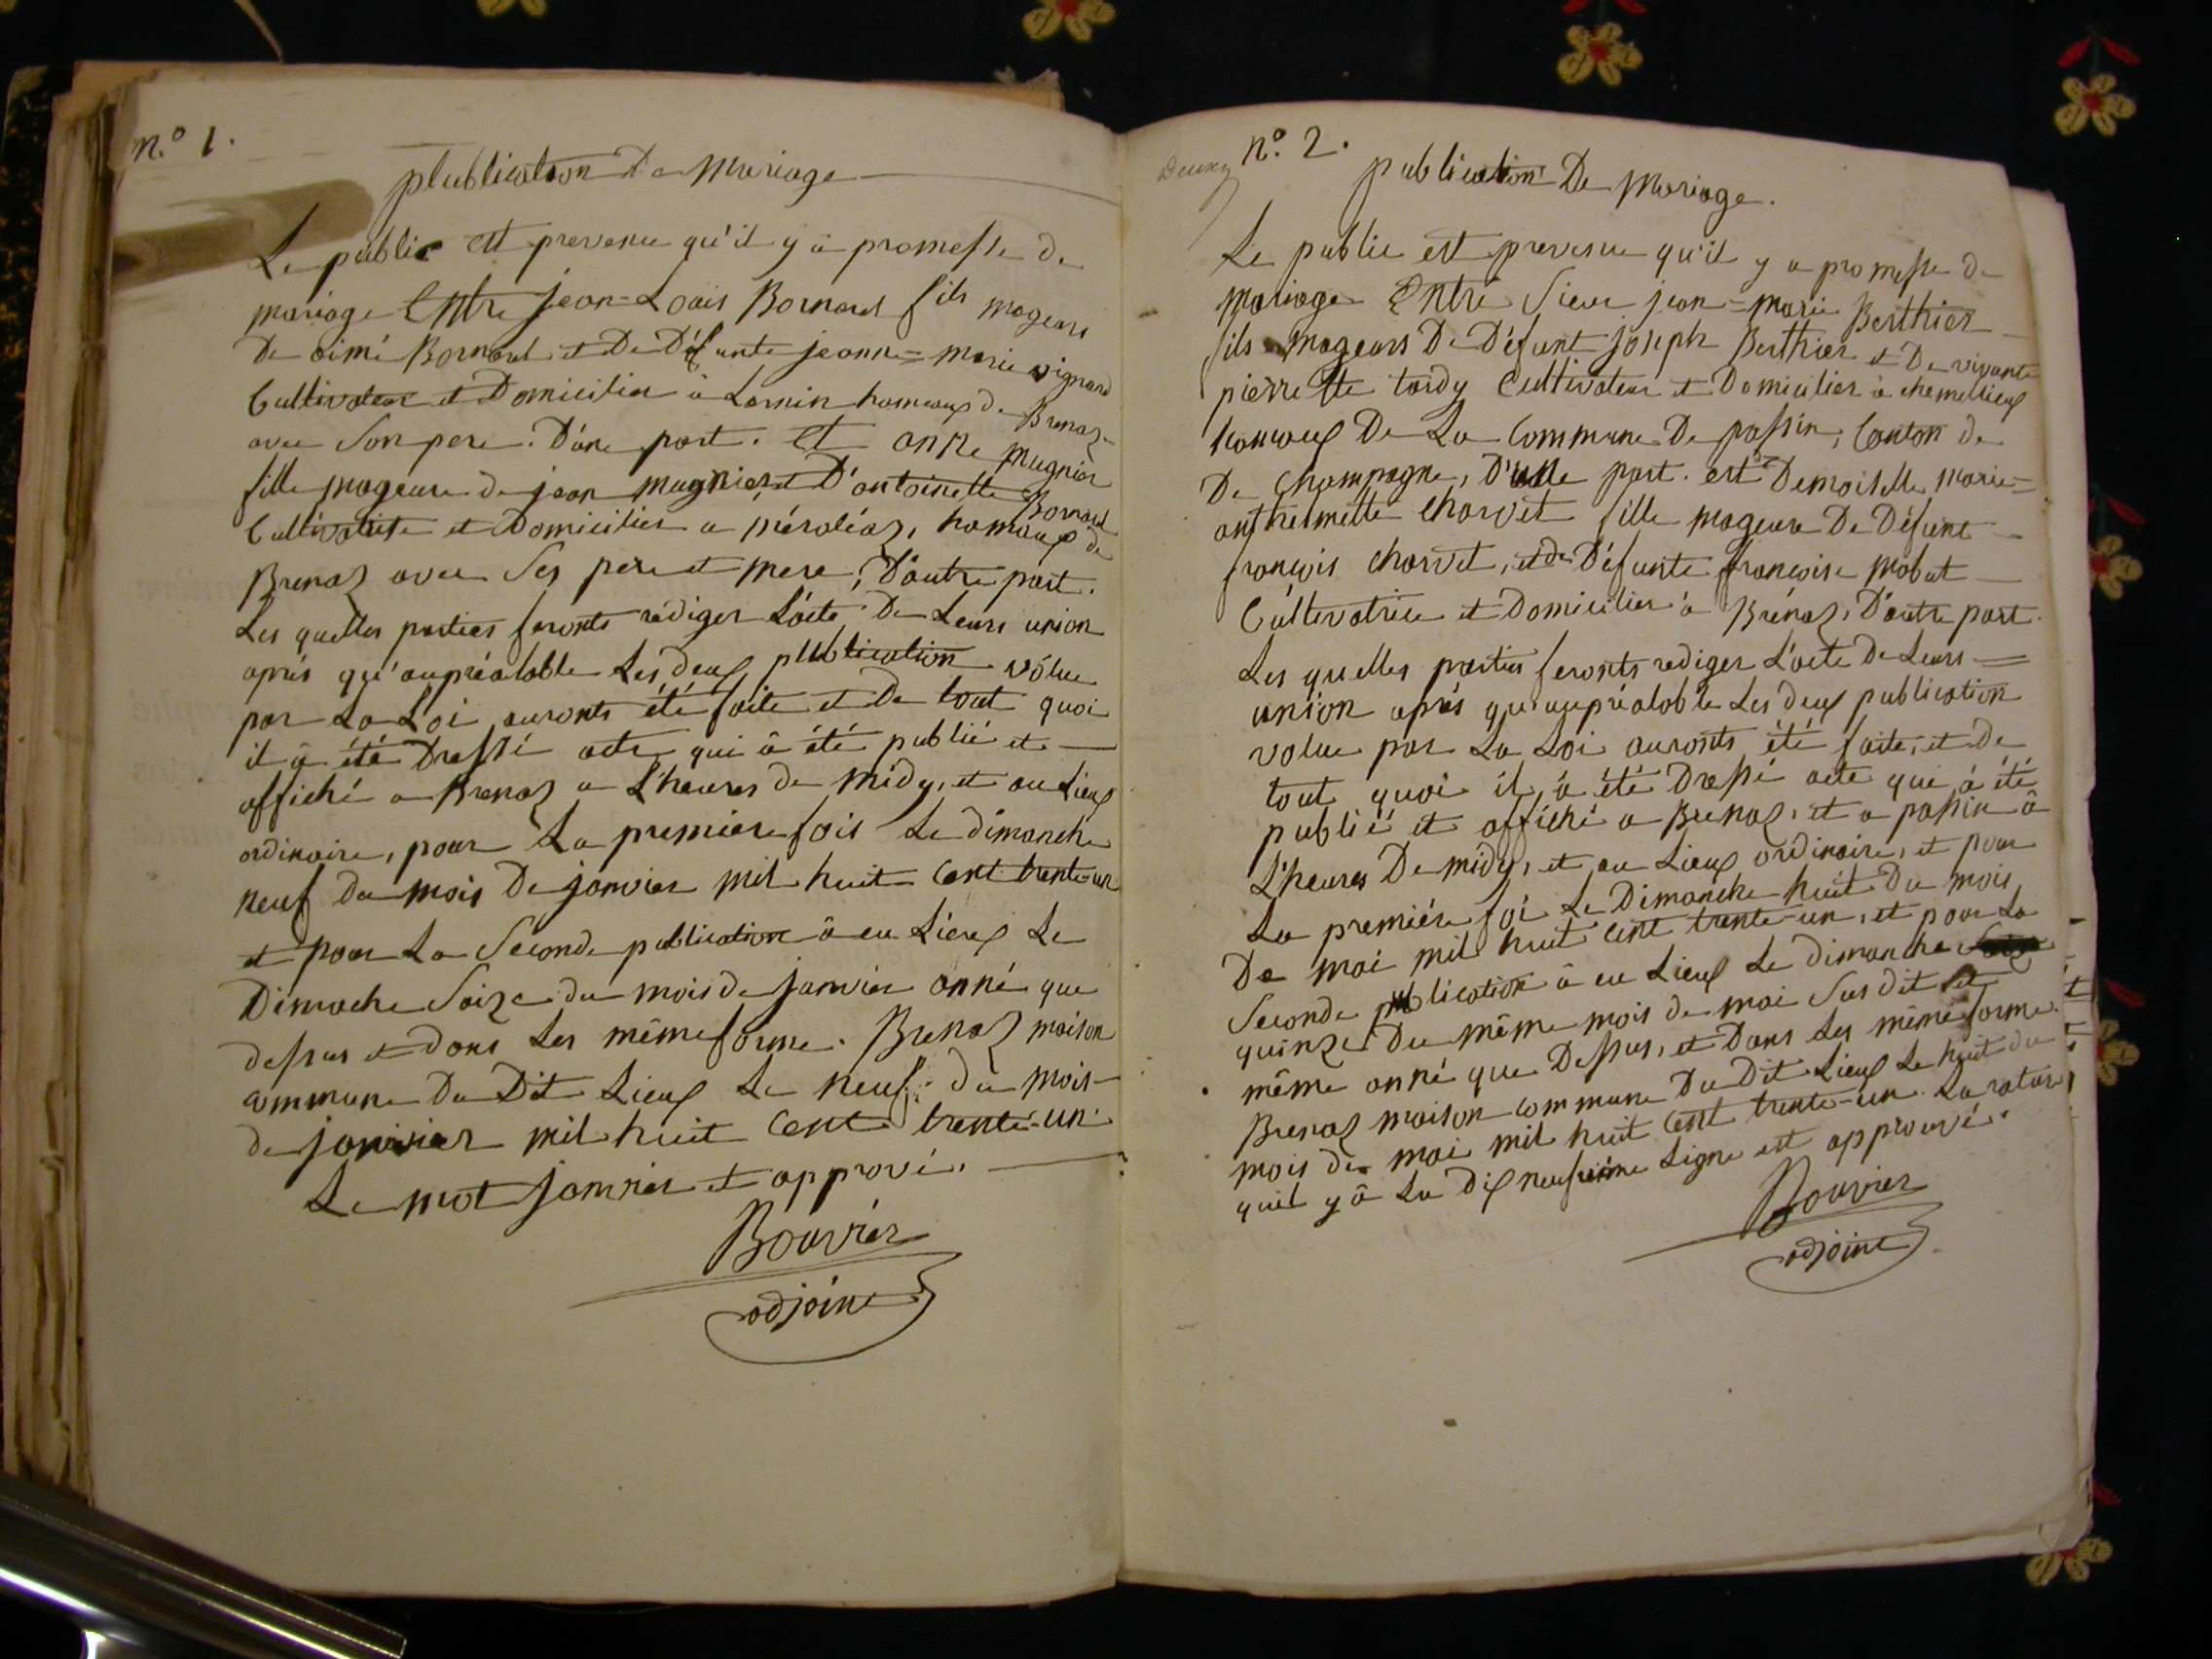 n.° 1.
plublication De Mariage
Le public est prevenu qu'il y à promesse de
mariage Entre jean=Louis Bornard fils mageurs
De aimé Bornard et De Défunte jeanne=marie vignard
Cultivateur et Domicilier à Lamin hameaux de Brenaz
avec Son pere. D'une part. et anne mugnier
fille mageure de jean mugnier et D'antoinette Bornard
Cultivatrise et Domicilier a méraléaz, hameaux de
Brenaz avec Ses pere et mere, D'autre part.
Les quelles parties feronts rédiger L'acte De Leurs union
aprés qu'aupréalable Les deux plublication vólue
par La Loi auronts été faite et De tout quoi
il à été Dressé acte qui à été publié et
affiché a Brenaz a L'heures de midy, et au Lieux
ordinaire, pour La premiere fois Le dimanche
neuf du mois De janvier mil huit Cent trente-un
et pour La Seconde publication à eu Lieux Le
Dimache Saize du mois de janvier anné que
dessus et dans Les même forme. Brenaz maison
commune Du Dit Lieux Le neuf du mois
de janvier mil huit Cent trente-un
Le mot janvier et apprové.
Bouvier
adjoint
Deuxz n.° 2.
publication De Mariage.
Le public est prevenu qu'il y a promesse de
Mariage Entre Sieur jean=marie Berthier
fils mageurs De Défunt Joseph Berthier et De vivante
pierrette tardy Cultivateur et Domicilier à chemillieux
hameaux De La Commune De passin, Canton de
De Champagne, D'une part. est Demoiselle marie=
anthelmette Charvet fille mageure De Défunt
françois Charvet, et de Défunte françoise mobut
Cultivatrice et Domicilier à Brénaz, D'autre part.
Les quelles parties feronts rediger L'acte De Leurs
union aprés qu'aupréalable Les deux publication
volue par La Loi auronts été faite, et De
tout quoi il à été Dressé acte qui à été
publié et affiché a Brenaz, et a passin à
L'heures De midy, et au Lieux ordinaire, et pour
La premiére foi Le Dimanche huit Du mois
De mai mil huit Cent trente-un, et pour La
Seconde publication à eu Lieux Le dimanche
quinze Du même mois de mai Sus dit et
même anné que Dessus, et Dans Les même forme.
Brenaz maison commune Du Dit Lieux Le huit du
mois de mai mil huit Cent trente-un. La rature
quil y à La Dix neufvieme Ligne est approuvé.
Bouvier
adjoint